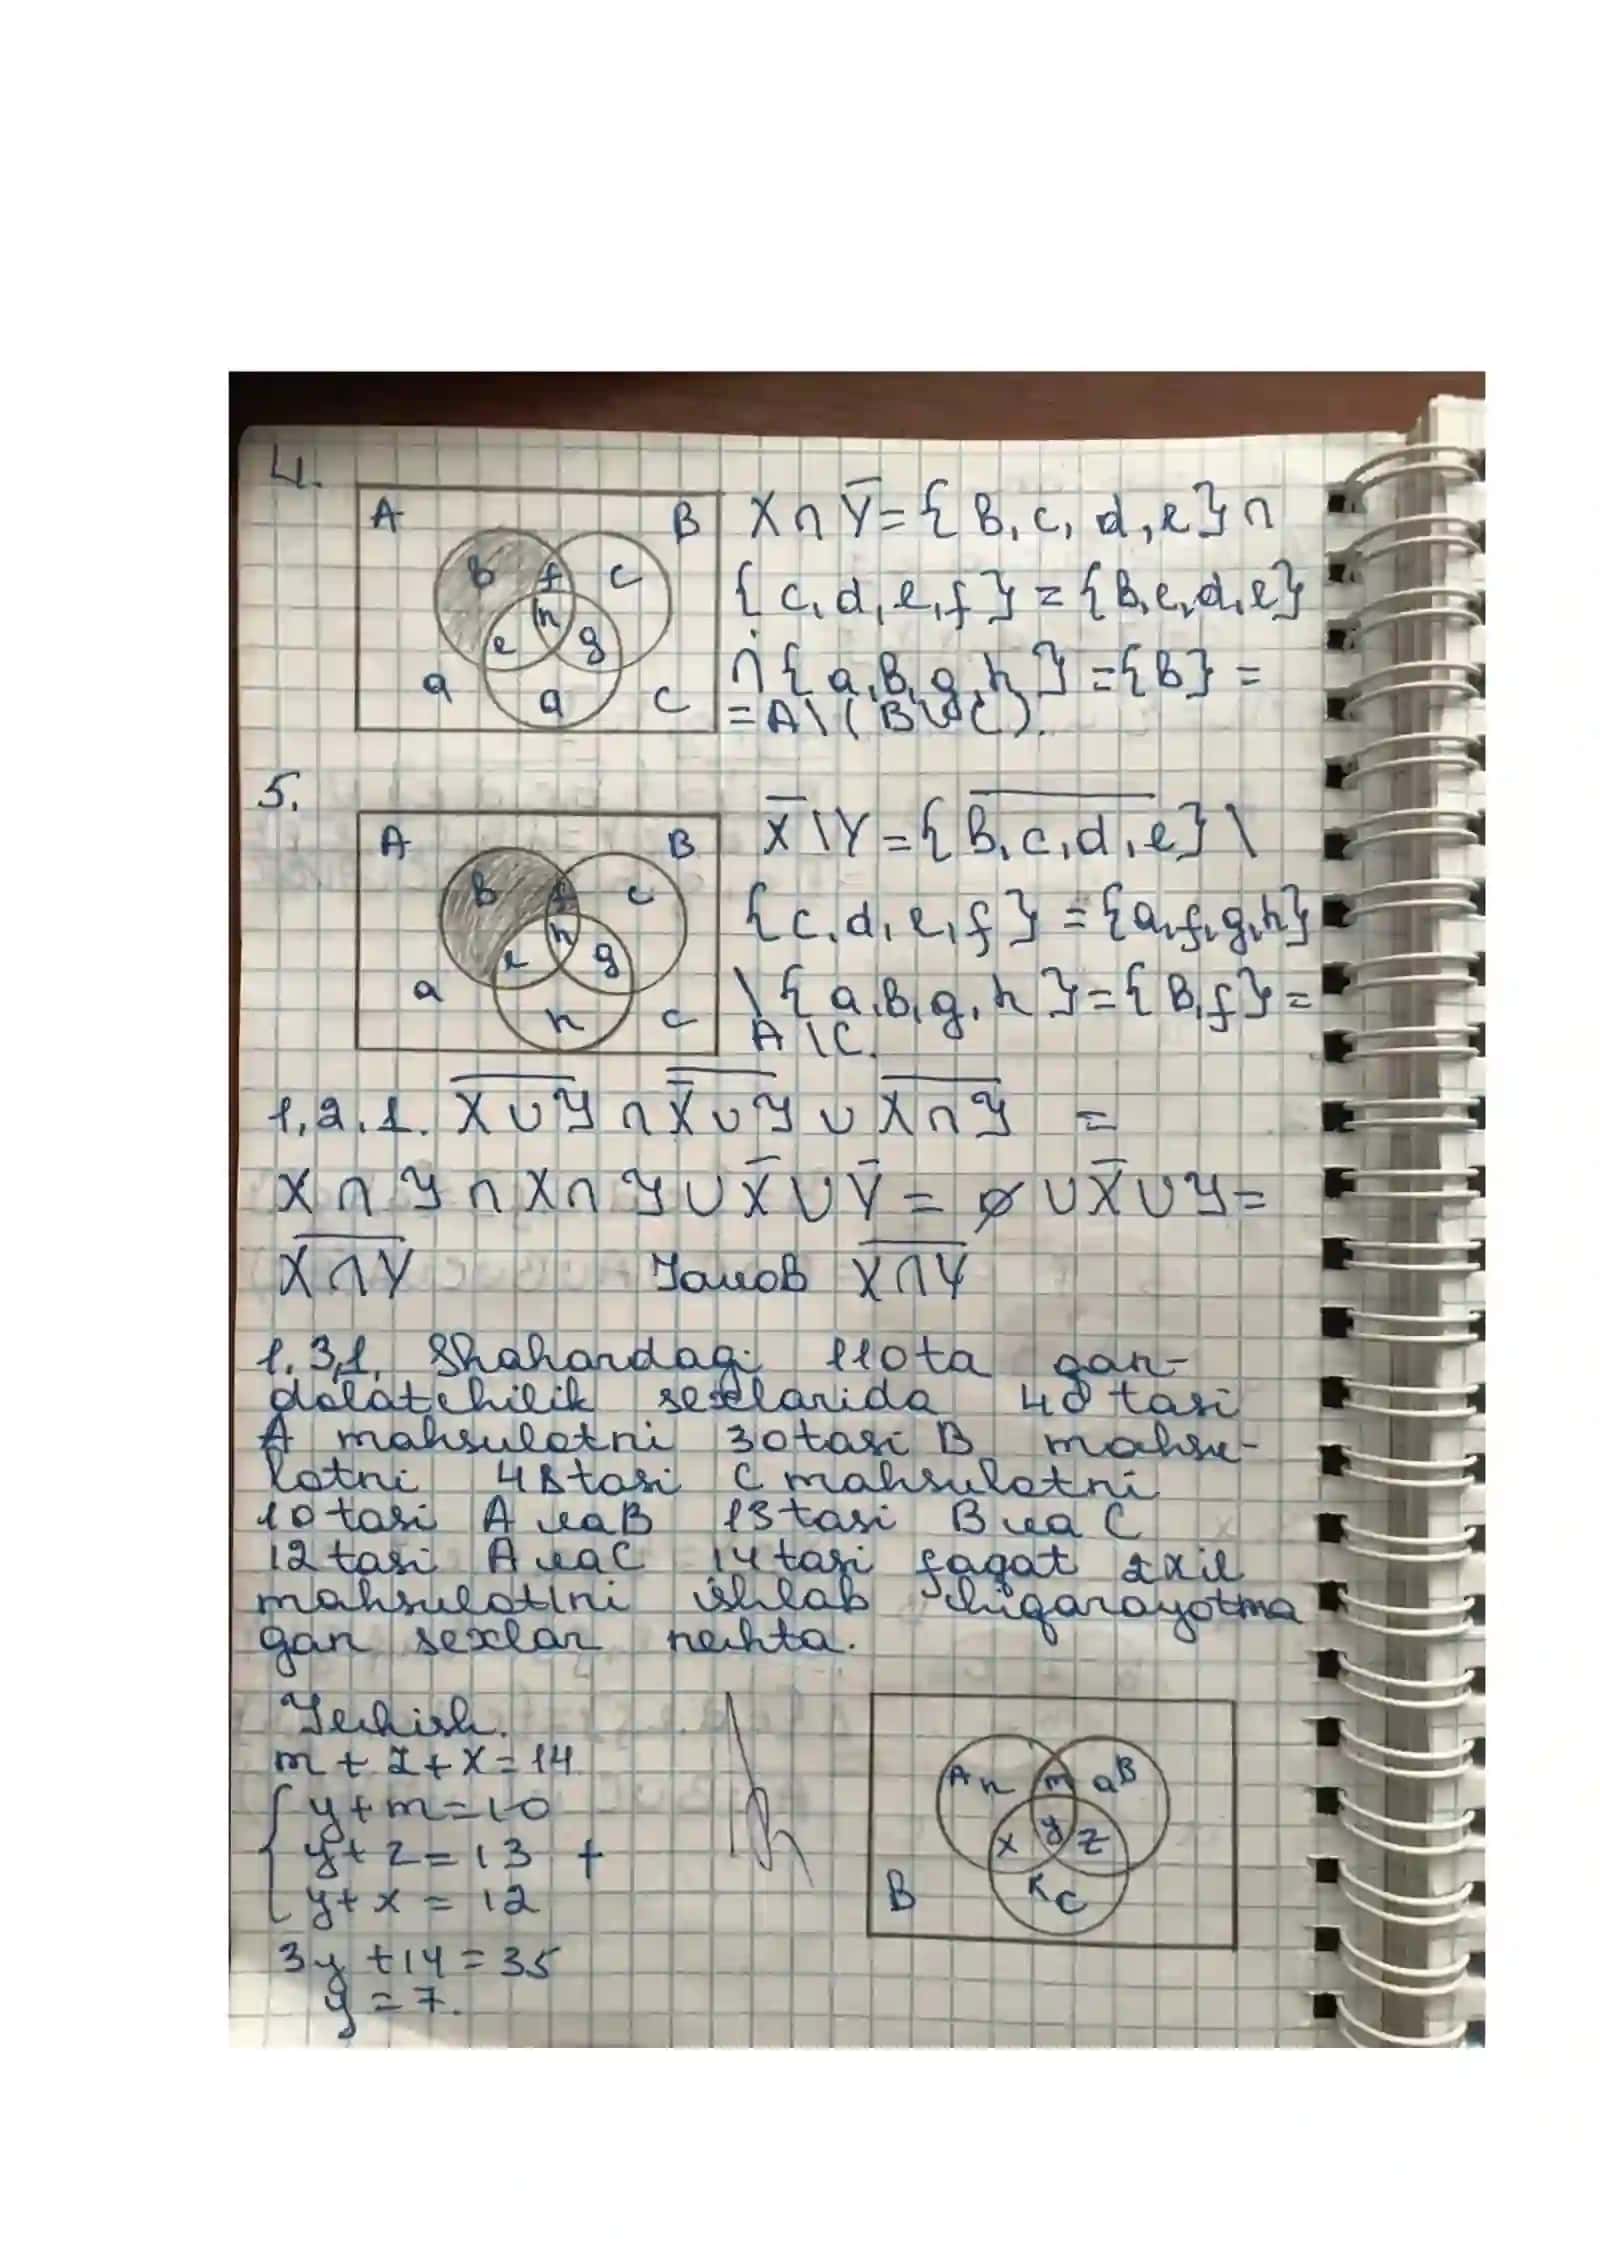 4.
A
B
b
f
c
h
e
g
a
a
C
X ∩ Y̅ = { B, c, d, e } ∩
{ c, d, e, f } = { B, c, d, e }
∩ { a, B, g, h } = { B } =
= A \ ( B ∪ C ).
5.
A
B
b
f
c
h
e
g
a
h
C
X̅ \ Y = { B, c, d, e } \
{ c, d, e, f } = { a, f, g, h }
\ { a, B, g, h } = { B, f } =
A \ C.
1,2,1. X ∪ Y ∩ X̅ ∪ Y ∪ X ∩ Y =
X ∩ Y ∩ X ∩ Y ∪ X̅ ∪ Y̅ = ∅ ∪ X̅ ∪ Y =
X ∩ Y X ∩ Y
1,3,1. Shahardagi 110ta qan-
dolatchilik sexlarida tasi
A mahsulotni 30tasi B mahsu-
lotni tasi C mahsulotni
10tasi A ва B 13tasi B ва C
12tasi A ва C 14tasi faqat 2xil
mahsulotini ishlab chiqarayotma
gan sexlar nechta.
Yechish.
m + z + x = 14
y + m = 10
y + z = 13 +
y + x = 12
3y + 14 = 35
y = 7.
A n m a B
x y z
B
K C